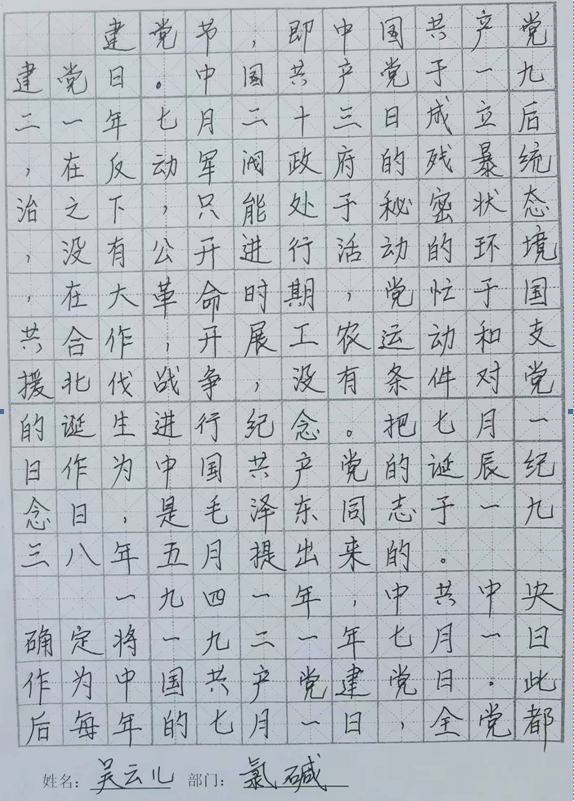 建党节，即中国共产党
建党日。中国共产党于一九
二一年七月二十三日成立后
，在反动军阀政府的残暴统
治之下，只能处于秘密状态
，没有公开进行活动的环境
，在大革命时期，党忙于国
共合作，开展工农运动和支
援北伐战争，没有条件对党
的诞生进行纪念。把七月一
日作为中国共产党的诞辰纪
念日，是毛泽东同志于一九
三八年五月提出来的。
一九四一年，中共中央
确定将一九二一年七月一日
作为中国共产党建党日。此
后每年的七月一日，全党都
姓名：吴云儿 部门：氯碱